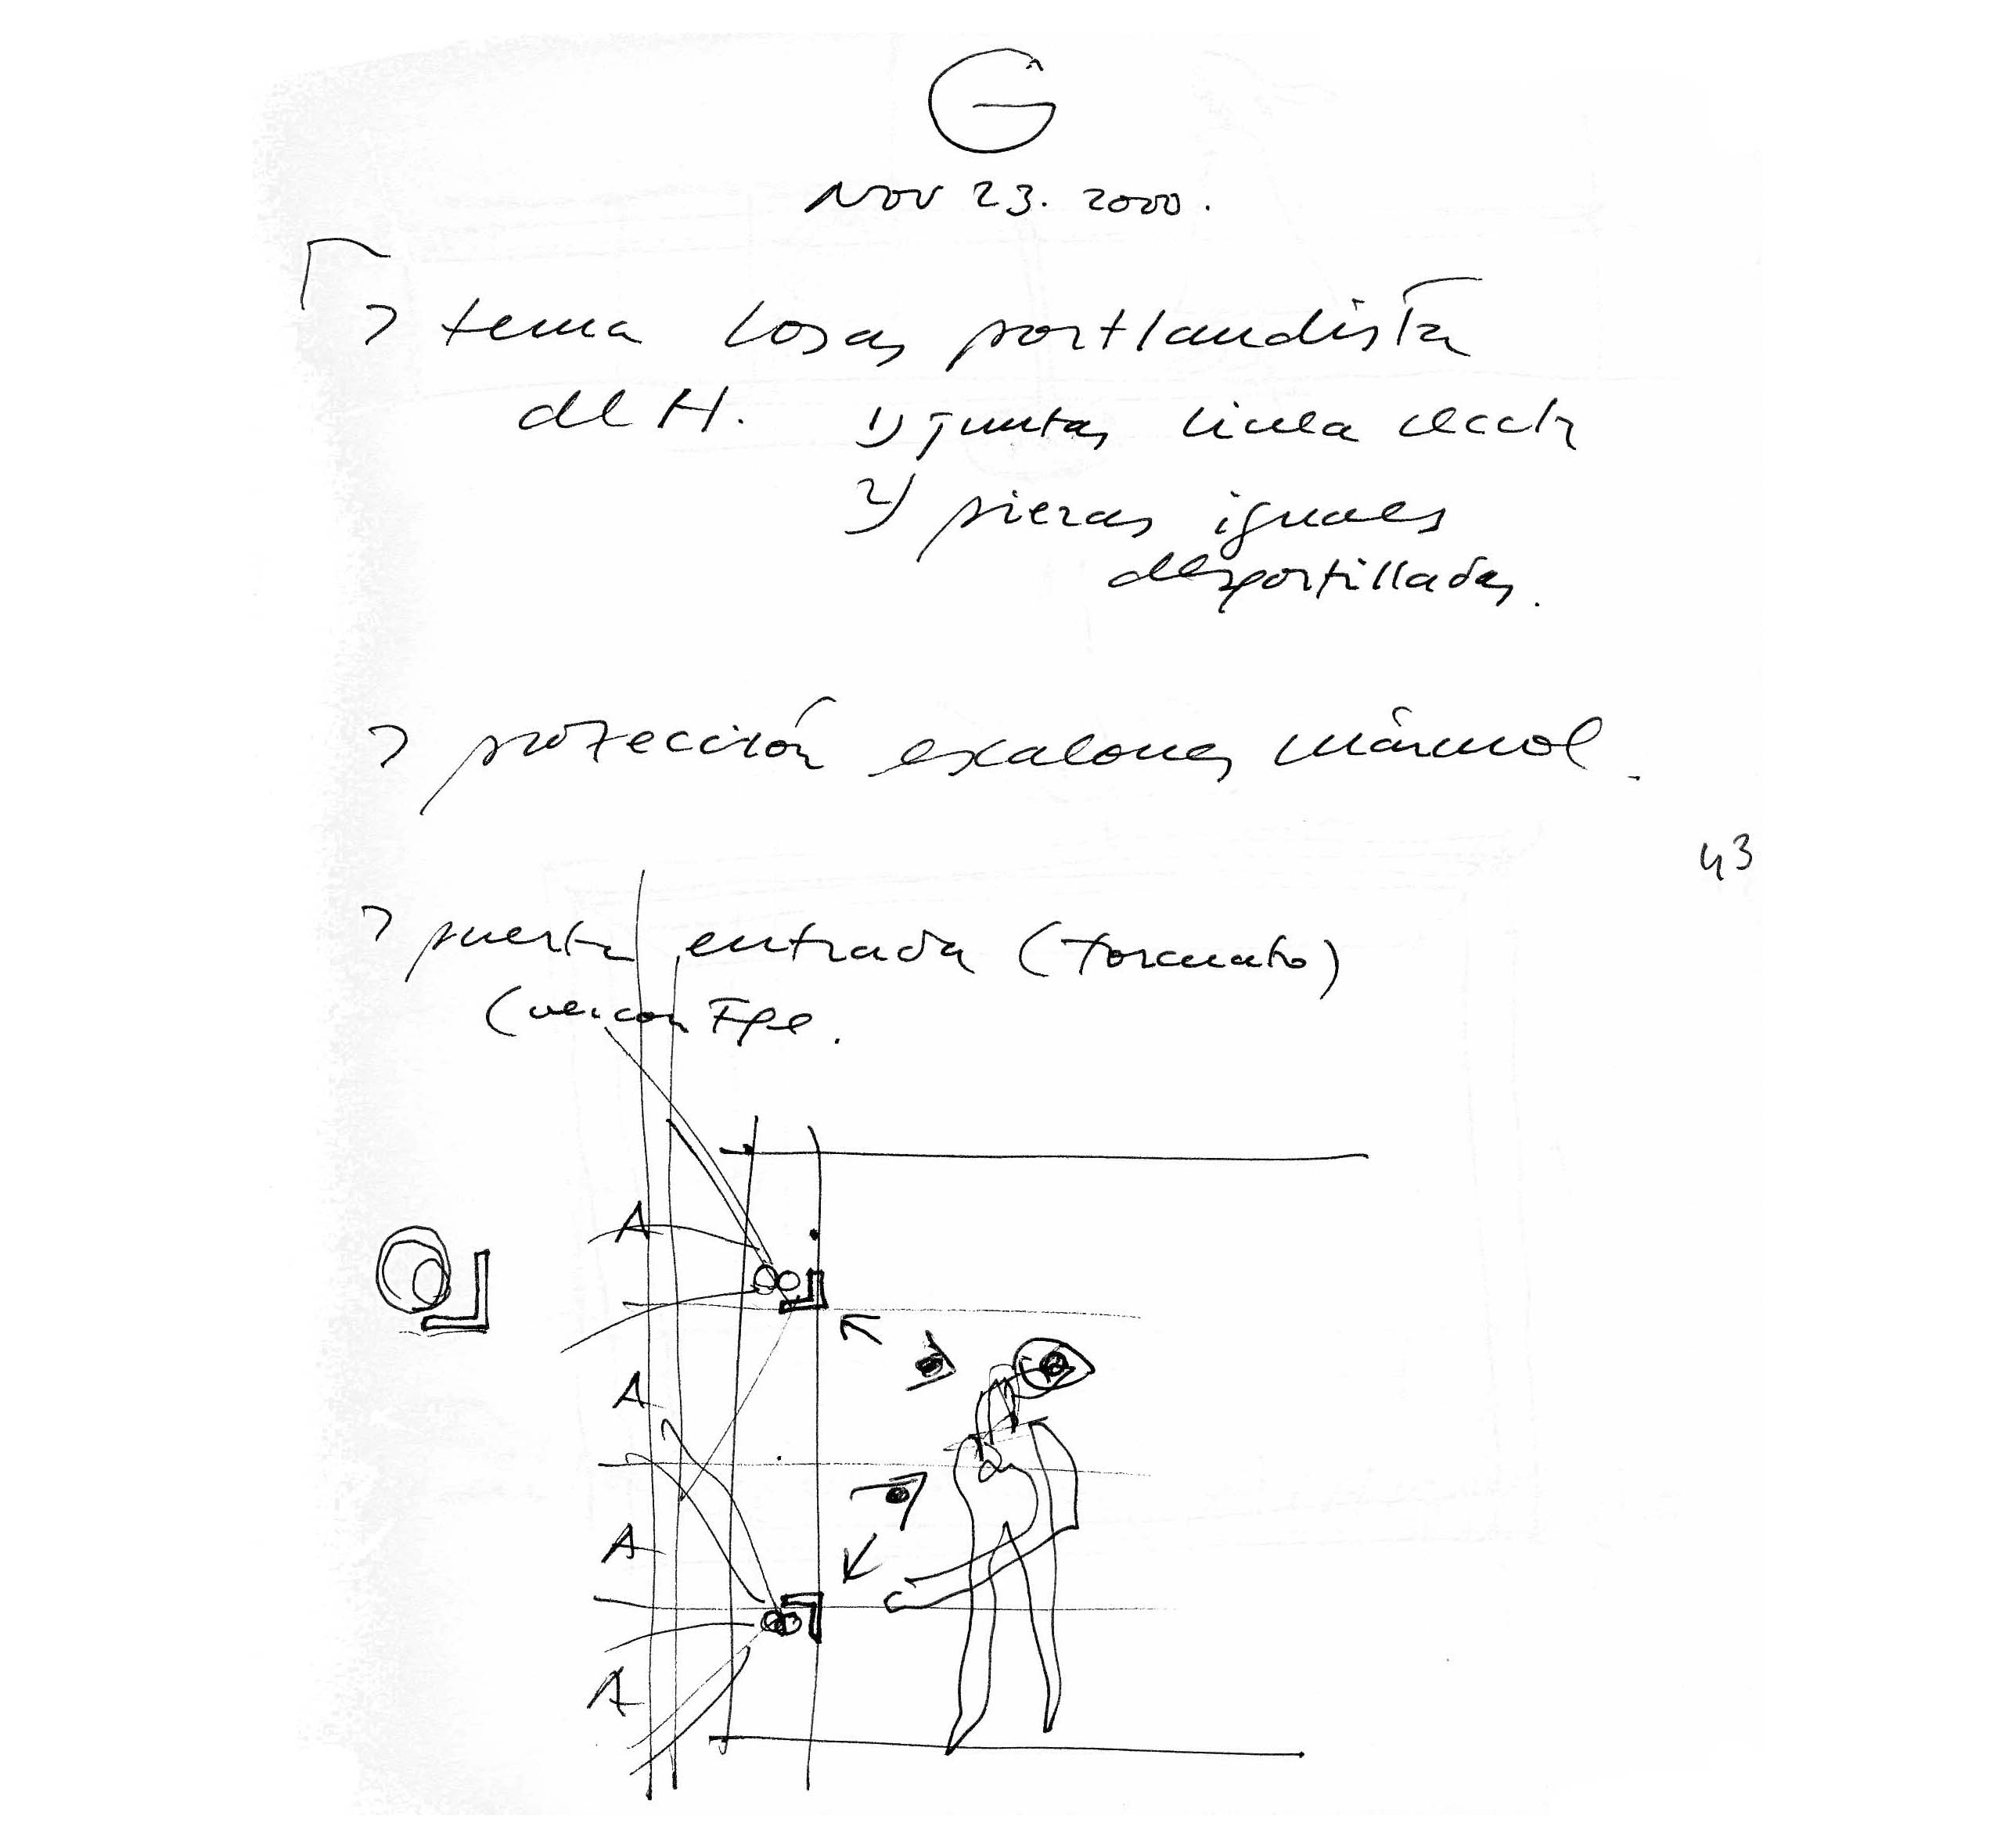 G
Nov 23. 2000.
> tema losas portlandista
del H. 1) juntas linea recta
2) piezas iguales
desportilladas.
> protección escalones mármol.
43
> puerta entrada (formato)
(ver con Fpe.
A
A
A
A